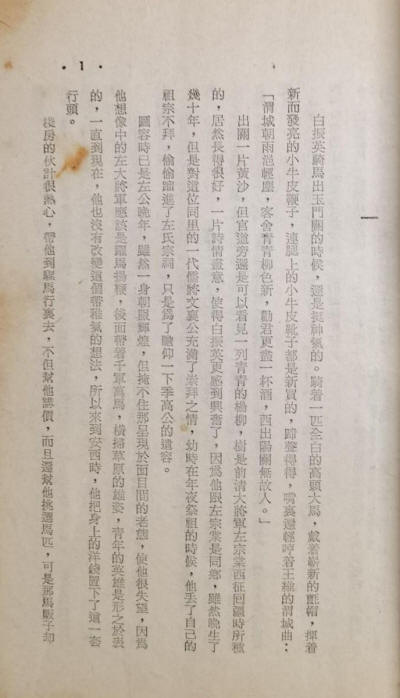 一
白振英騎馬出玉門關的時候，還是挺神氣的。騎着一匹全白的高頭大馬，戴着嶄新的氈帽，揮着
新而發亮的小牛皮鞭子，連腿上的小牛皮靴子都是新買的，蹄聲得得，嘴裏還輕哼着王維的渭城曲：
「渭城朝雨浥輕塵，客舍青青柳色新，勸君更盡一杯酒，西出陽關無故人。」
出關一片黃沙，但官道旁還是可以看見一列青青的楊柳，樹是前清大將軍左宗棠西征回疆時所種
的，居然長得很好，一片詩情畫意，使得白振英更感到興奮了，因為他跟左宗棠是同鄉，雖然晚生了
幾十年，但是對這位同里的一代儒將文襄公充滿了崇拜之情，幼時在年夜祭祖的時候，他丟了自己的
祖宗不拜，偷偷蹓進了左氏宗祠，只是為了瞻仰一下季高公的遺容。
圖容時已是左公晚年，雖然一身朝服輝煌，但掩不住那呈現於面目間的老態，使他很失望，因為
他想像中的左大將軍應該是躍馬揚鞭，後面帶着千軍萬馬，橫掃草原的雄姿，青年的英雄是形之於表
的，一直到現在，他也沒有改變這個帶稚氣的想法，所以來到安西時，他把身上的洋錢置下了這一套
行頭。
棧房的伙計很熱心，帶他到騾馬行裏去，不但幫他講價，而且還幫他挑選馬匹，可是那馬販子却
•1•